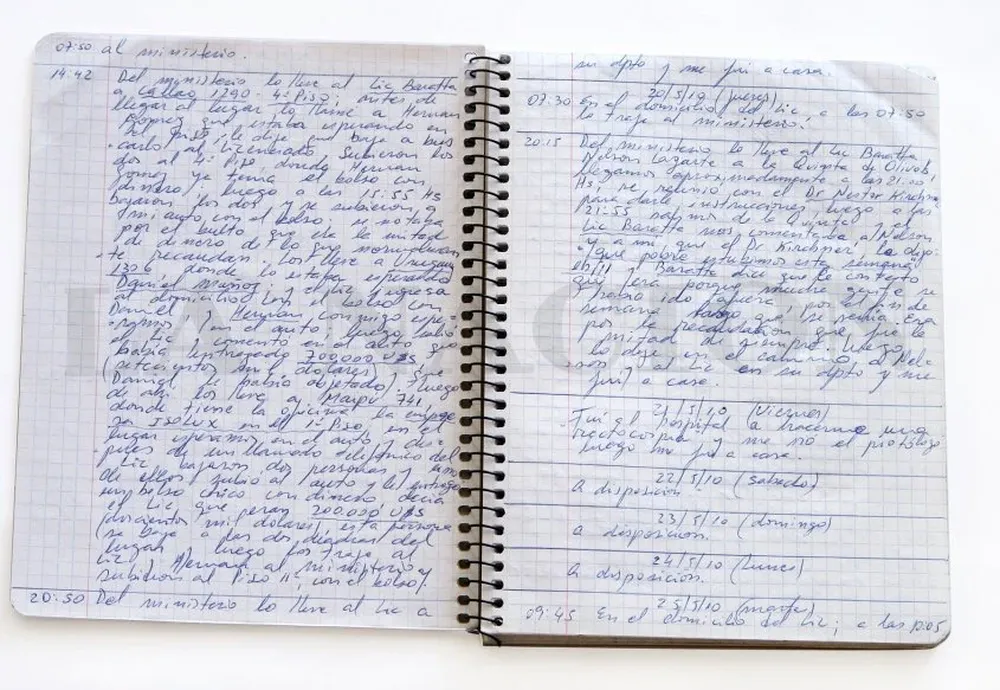 07:50 al ministerio.
14:42 Del ministerio lo lleve al Lic Baratta
a Callao 1290. 4º Piso, antes de
llegar al lugar lo llame a Hernan
Gomez que estaba esperando en
el Piso, le dije que baje a bus-
carlo al Licenciado. Subieron los
dos al 4º Piso donde Hernan
Gomez ya tenia el bolso con
dinero, luego a las 15:55 Hs
bajaron los dos y se subieron a
mi auto con el bolso. se notaba
por el bulto que era la mitad
de dinero de lo que normalmen-
te recaudan. Los lleve a Uruguay
1306 donde lo estaba esperando
Daniel Muñoz, y ingresa
al domicilio con el bolso con
Daniel y Hernan conmigo espe-
ramos en el auto, luego subió
el Lic y comentó en el auto que
habia entregado 700.000 U$S
(setecientos mil dolares) y que
Daniel le habia objetado. luego
de ahi los lleve a Maipu 741
donde tiene la oficina la empre-
sa ISOLUX en el 1º Piso, en el
lugar esperamos en el auto y des-
pues de un llamado telefonico del
Lic bajaron dos personas y uno
de ellos subió al auto y le entregó
un bolso chico con dinero decia
el Lic que eran 200.000 U$S
(doscientos mil dolares), esta persona
se bajo a las dos cuadras del
lugar, luego los traje al
Lic y Hernan al ministerio y
subieron al Piso 11º con el bolso.
20:50 Del ministerio lo lleve al Lic a
su dpto y me fui a casa.
20/5/10 (jueves)
07:30 En el domicilio del Lic, a las 07:50
lo traje al ministerio.
20:15 Del ministerio lo lleve al Lic Baratta
Nelson Lazarte a la Quinta de Olivos,
llegamos aproximadamente a las 21:00
Hs, se reunió con el Dr Nestor Kirchner
para darle instrucciones, luego a las
21:55 salimos de la Quinta. el
Lic Baratta nos comentaba, a Nelson
y a mi, que el Dr Kirchner, le dijo
"que pobre estubimos esta semana"
y Baratta dice que le contestó
que era porque mucha gente se
habia ido afuera por el fin de
semana largo que se venia. Era
por la recaudacion que fue la
mitad de siempre, luego
lo deje en el camino a Nel-
son y al Lic en su dpto y me
fui a casa.
21/5/10 (viernes)
Fui al hospital a hacerme una
rectocospia y me vió el proctologo
luego me fui a casa.
22/5/10 (sabado)
A disposicion.
23/5/10 (domingo)
a disposicion.
24/5/10 (lunes)
a disposicion.
25/5/10 (martes)
09:45 En el domicilio del Lic; a las 10:05
LA NACION